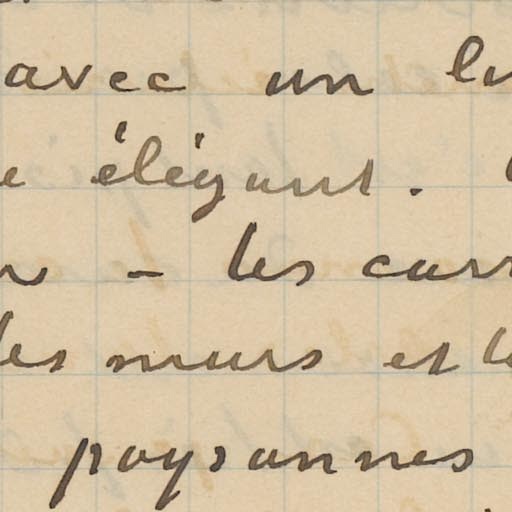 avec un
élégant.
– les
les murs et
paysannes